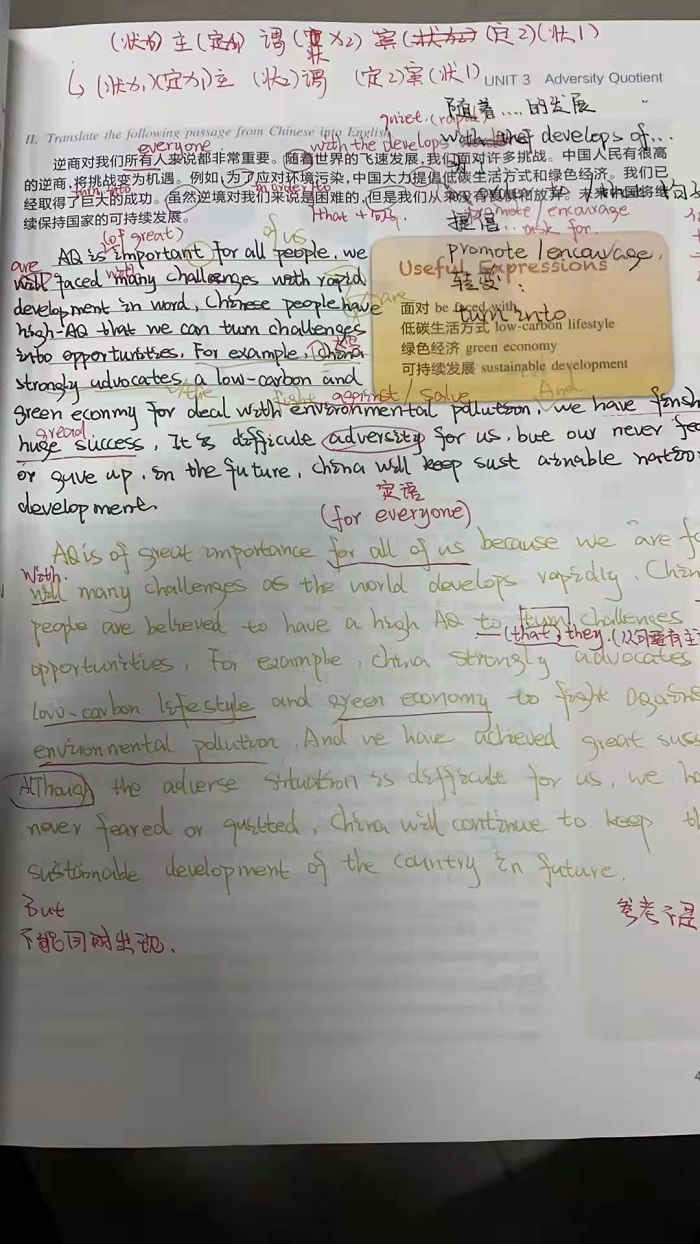 (状1) 主 (定1) 谓 (状2) 宾 (定2) (状1)
(状1)(定1)主 (状2)谓 (定2)宾(状1)
UNIT 3 Adversity Quotient
随着....的发展
II. Translate the following passage from Chinese into English
with the develops of...
everyone
with the develops
逆商对我们所有人来说都非常重要。随着世界的飞速发展，我们面对许多挑战。中国人民有很高
的逆商，将挑战变为机遇。例如，为了应对环境污染，中国大力提倡低碳生活方式和绿色经济。我们已
经取得了巨大的成功。虽然逆境对我们来说是困难的，但是我们从来没有畏惧和放弃。未来中国将继
续保持国家的可持续发展。
turn into
in order to
that + 句子
提倡
promote / encourage
ask for...
promote / encourage,
转变：
turn into
Useful Expressions
面对 be faced with
低碳生活方式 low-carbon lifestyle
绿色经济 green economy
可持续发展 sustainable development
(of great)
of us
AQ is important for all people. we
are
will faced many challenges with rapid
with
development in word, Chinese people have
high-AQ that we can turn challenges
into opportunities. For example, China
strongly advocates a low-carbon and
the
fight against / solve
And
green econmy for deal with environmental pollution. we have finsh
great
huge success, It is difficule adversity for us, but our never fea
or guve up. in the future, China will keep sust ainable nation
development.
定语
(for everyone)
AQ is of great importance for all of us because we are fa
With
will many challenges as the world develops rapidly. Chin
people are believed to have a high AQ to turn challenges
(that, they.
opportunities, For example, china strongly advocates
low-carbon lifestyle and green economy to fight agains
environmental pollution. And we have achieved great succ
Although the adverse situation is difficult for us, we ha
never feared or quitted, China will continue to keep th
sustainable development of the country in future.
But
不能同时出现.
参考不是
4